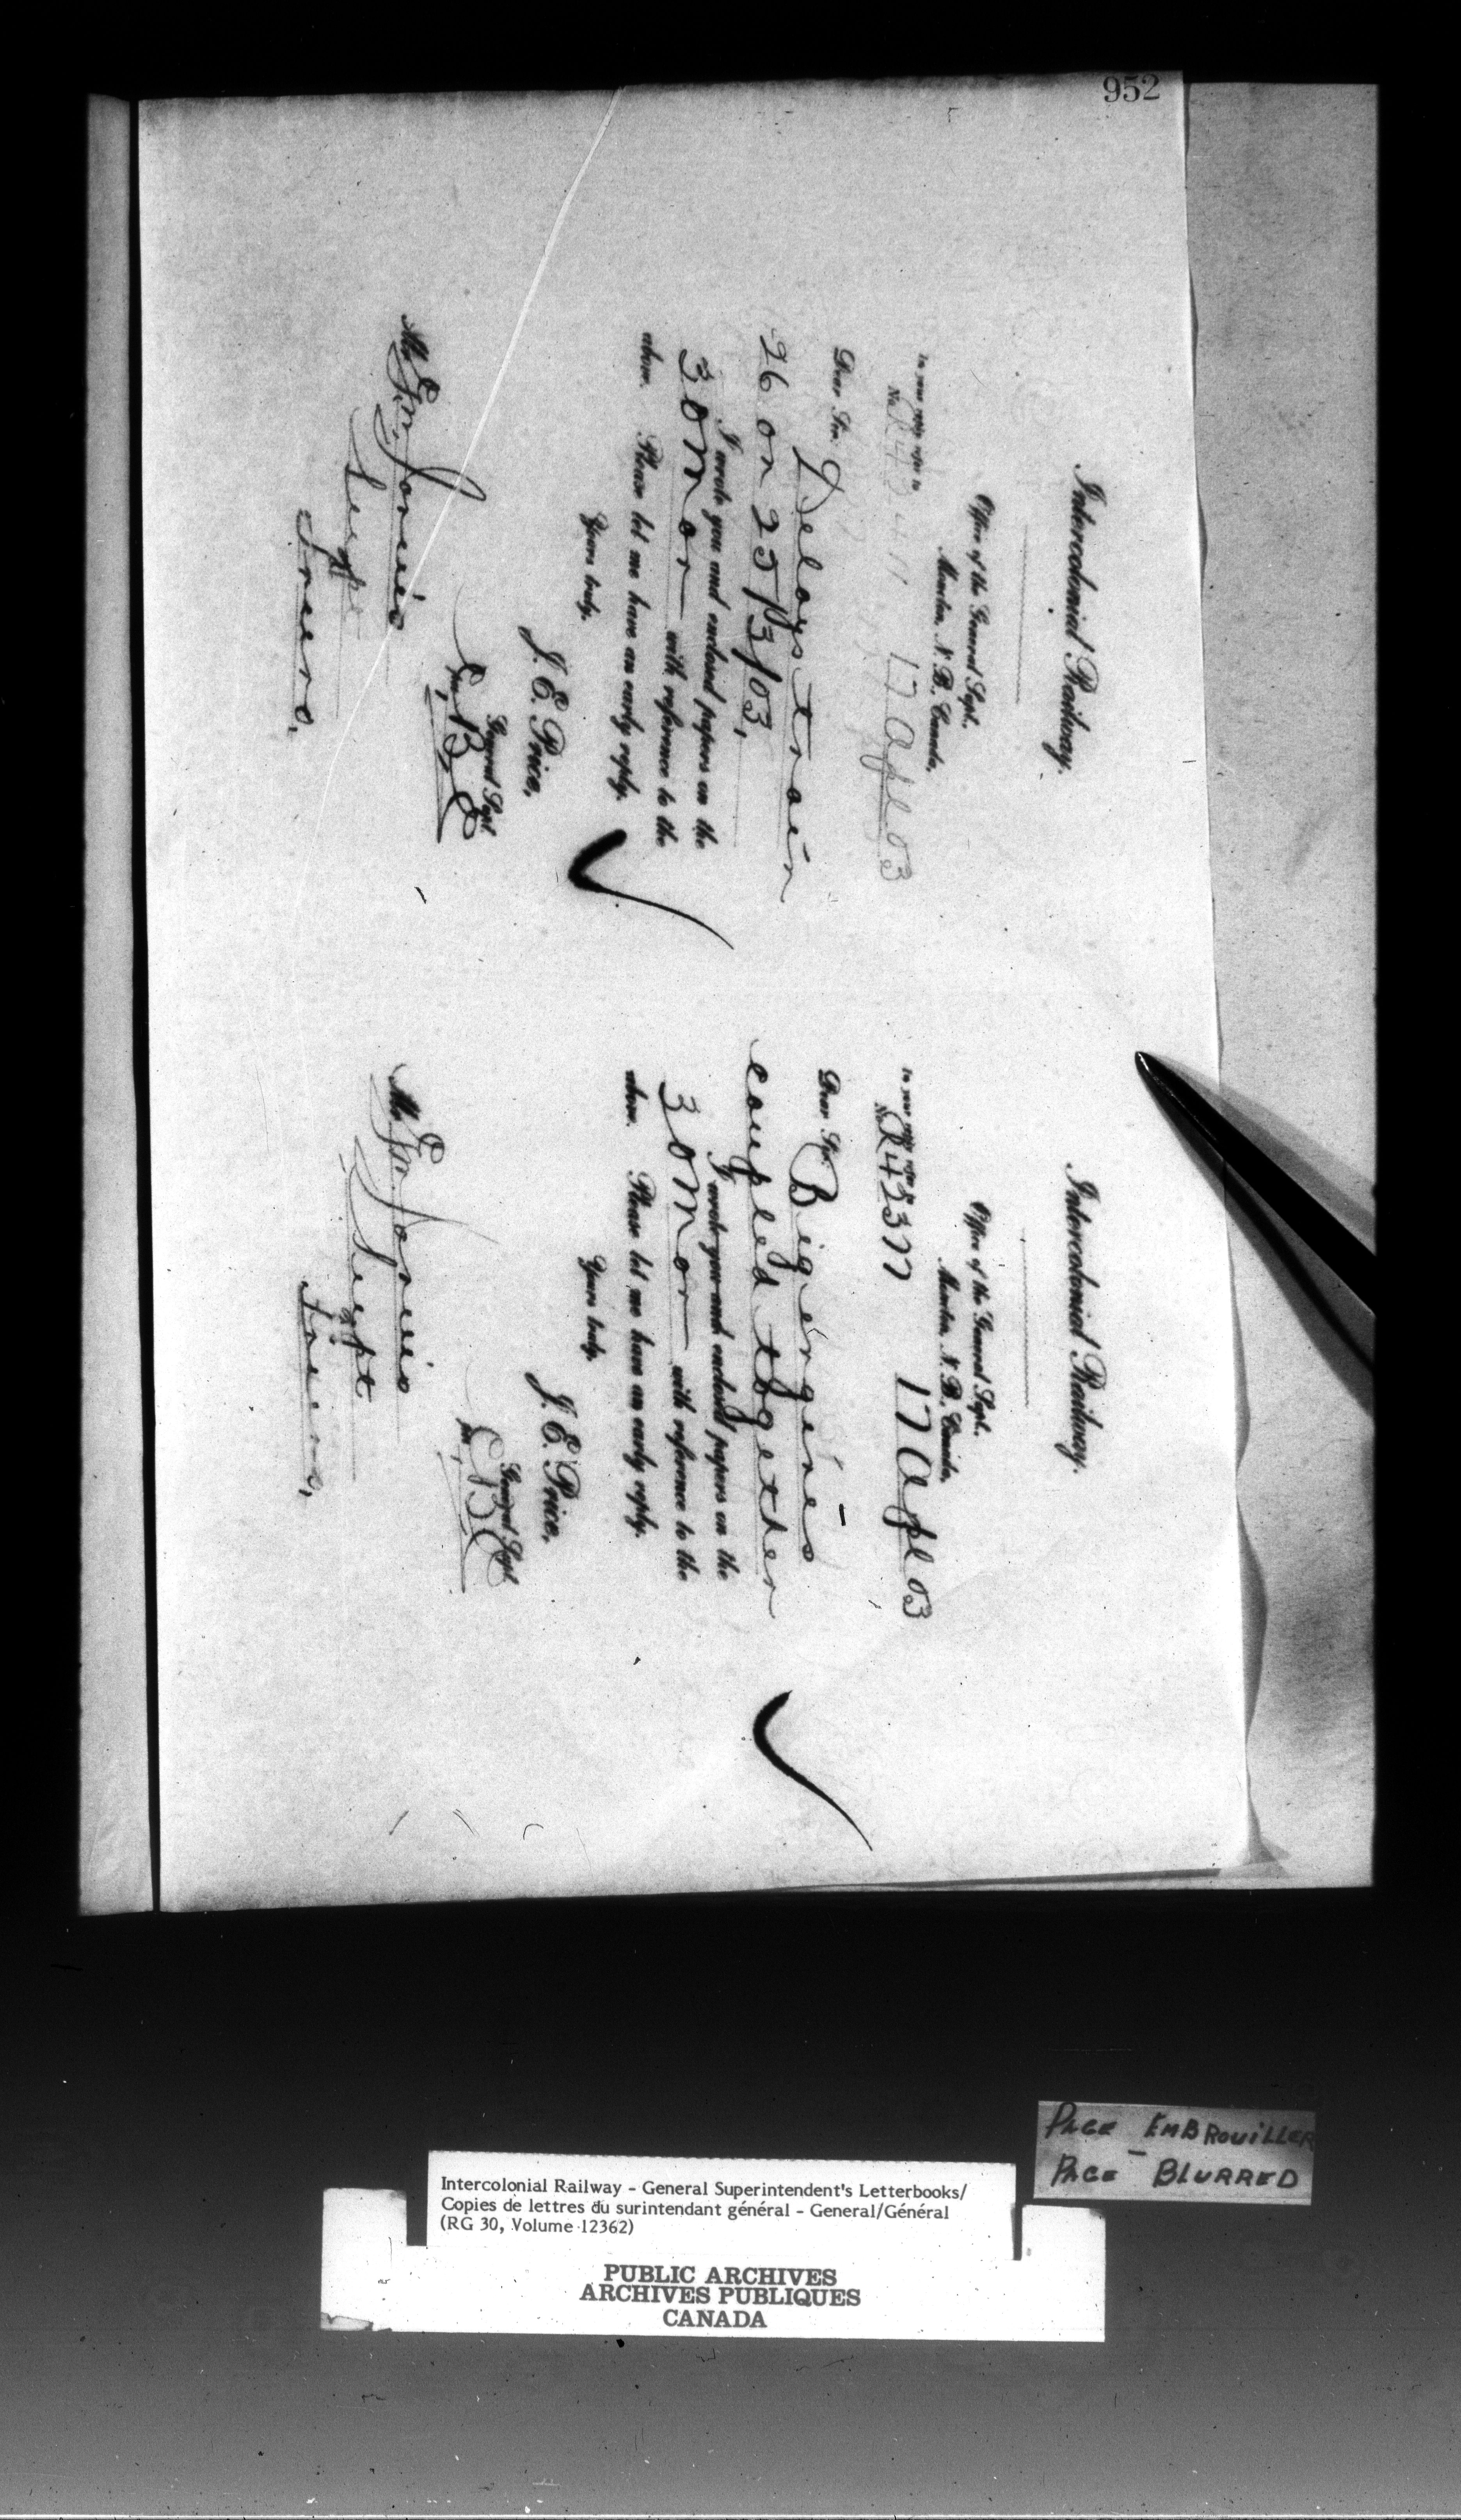 952
Intercolonial Railway.
Office of the General Supt.
Moncton, N. B., Canada,
In your reply refer to
No. 17 Apl 03
Dear Sir: Delays train
26 on 25/3/03,
I wrote you and enclosed papers on the
30 Mar with reference to the
above. Please let me have an early reply.
Yours truly,
J. E. Price,
General Supt.
Mr
Supt
Truro,
Intercolonial Railway.
Office of the General Supt.
Moncton, N. B., Canada,
In your reply refer to
No. 17 Apl 03
Dear Sir: Big engines
coupled together
I wrote you and enclosed papers on the
30 Mar with reference to the
above. Please let me have an early reply.
Yours truly,
J. E. Price,
General Supt.
Mr
Supt
Truro,
PAGE EMBROUILLER
-
PAGE BLURRED
Intercolonial Railway - General Superintendent's Letterbooks/
Copies de lettres du surintendant général - General/Général
(RG 30, Volume 12362)
PUBLIC ARCHIVES
ARCHIVES PUBLIQUES
CANADA